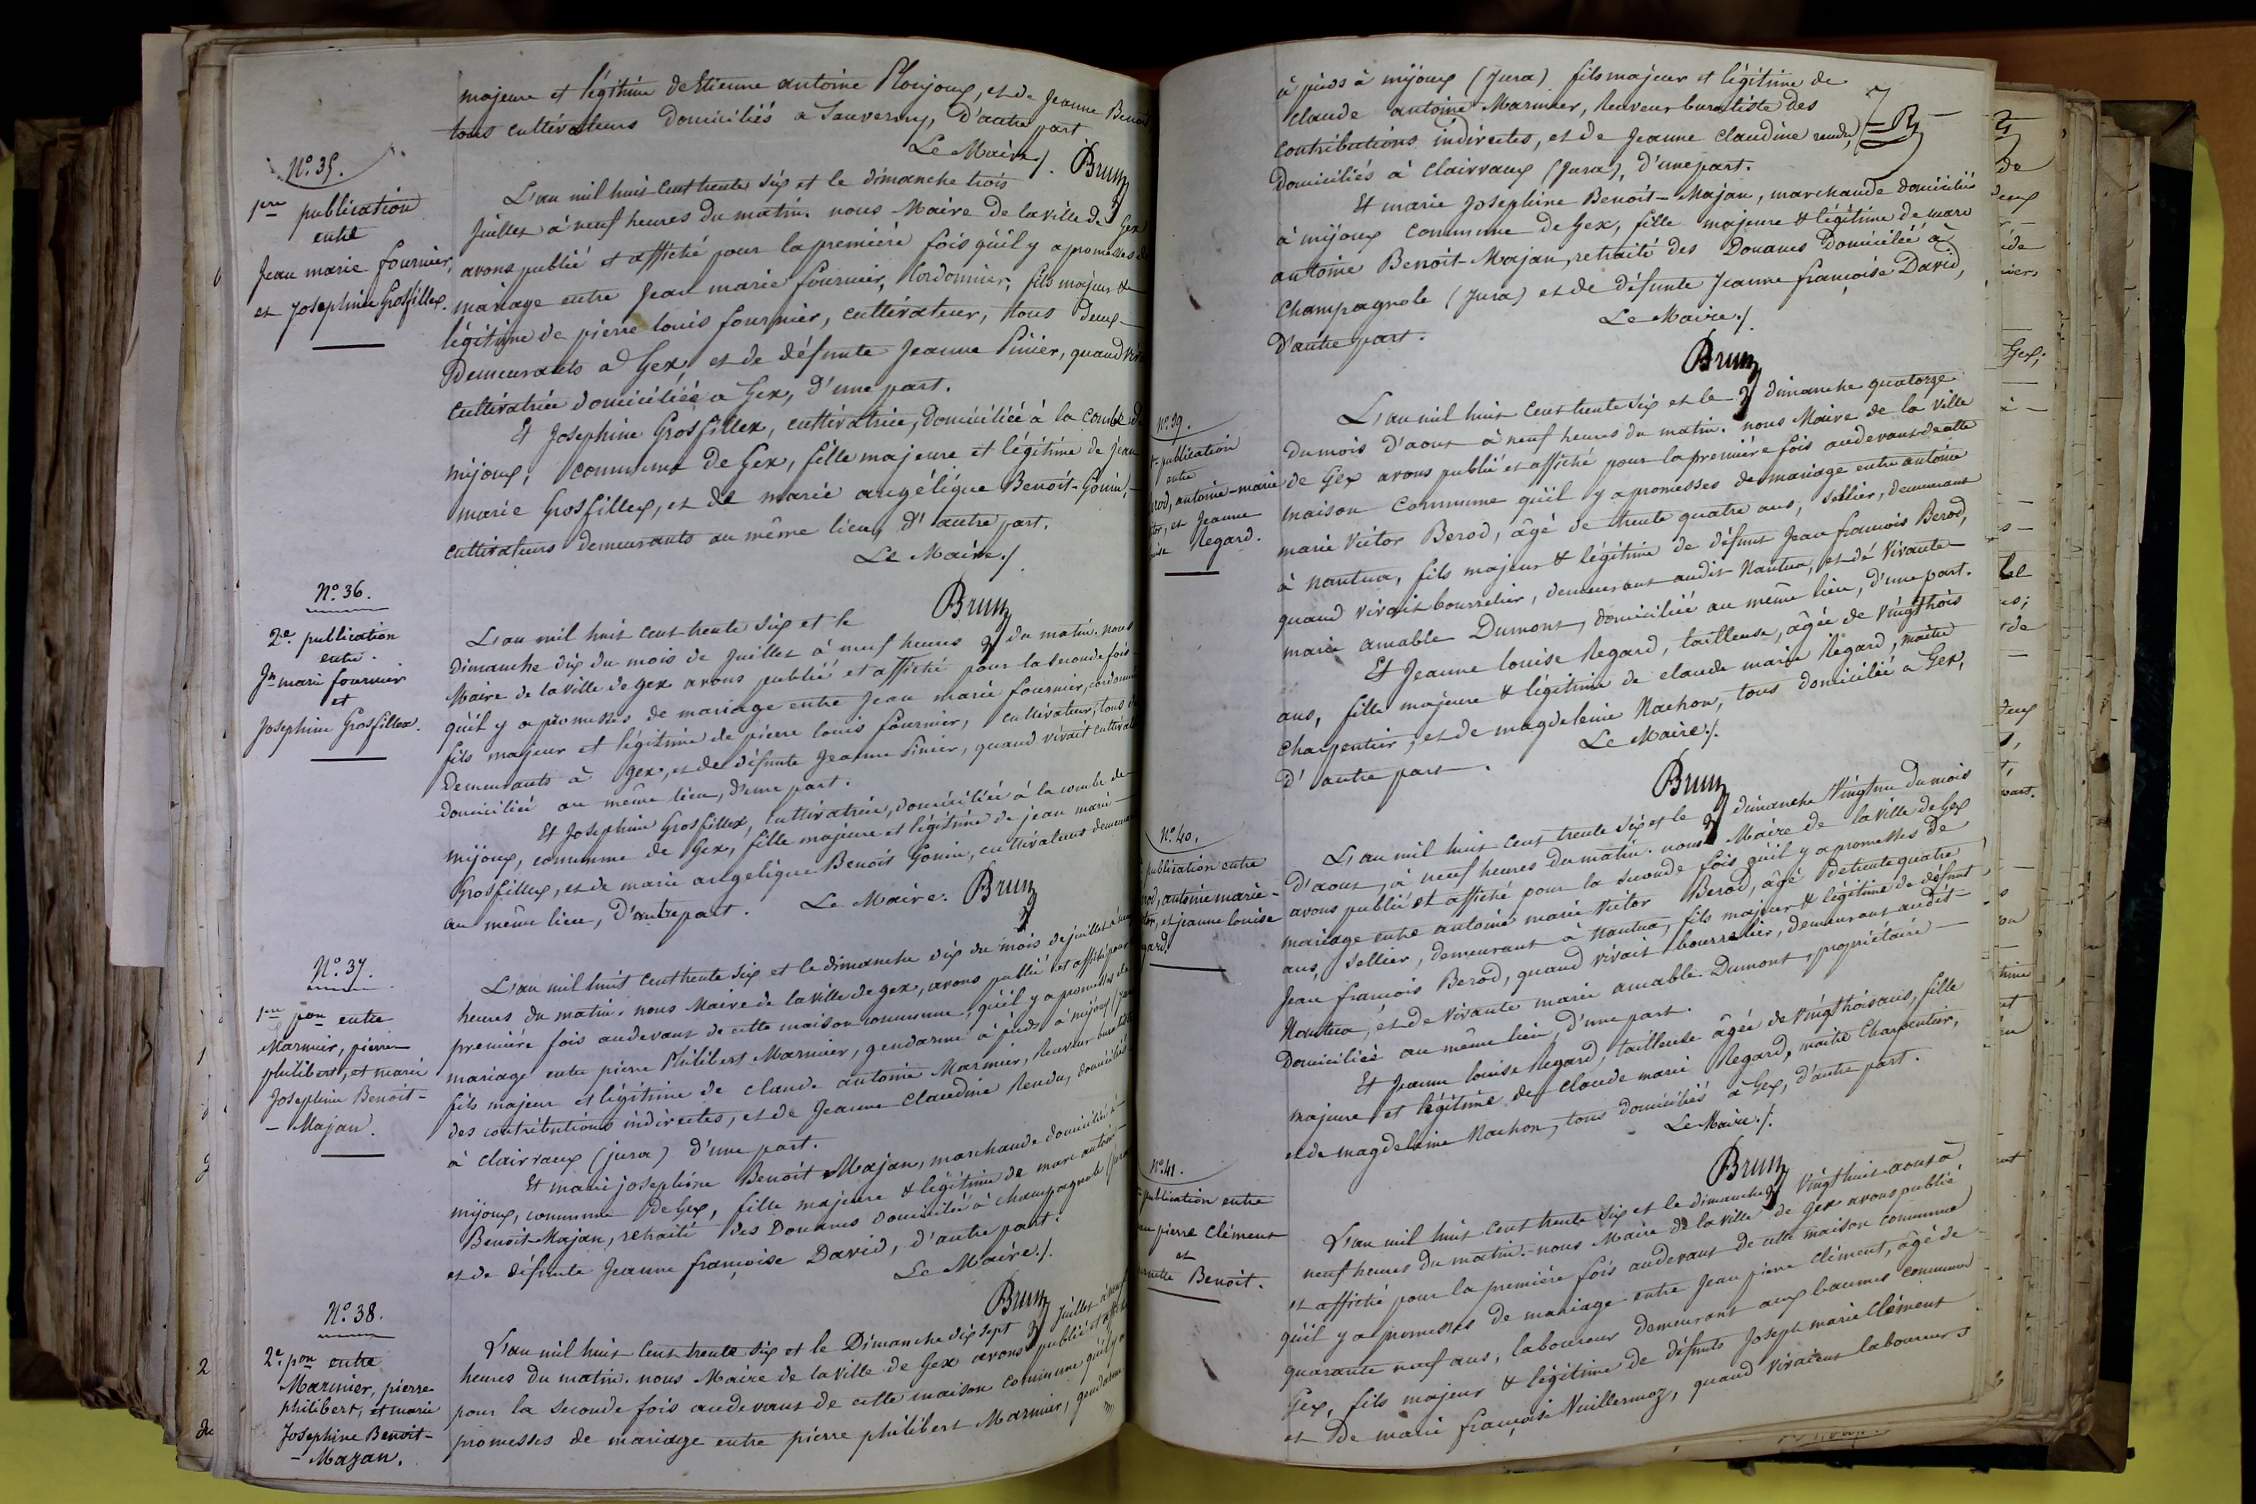 majeure et légitime de Etienne antoine Ploujoux, et de Jeanne Benoit
tous cultivateurs domiciliés a Sauverny, d'autre part
Le Maire /. Brun
N.º 35.
1ere publication
entre
Jean marie fournier,
et Josephine Grosfillex.
L'an mil huit cent trente six et le dimanche trois
Juillet à neuf heures du matin. nous Maire de la ville de Gex
avons publié et affiché pour la premiére fois qu'il y a promesses de
mariage entre Jean marie fournier, Cordonnier, fils majeur &
légitime de pierre louis fournier, cultivateur, tous deux
Demeurants a Gex, et de défunte Jeanne Pinier, quand viv
Cultivatrice domiciliée a Gex, d'une part.
Et Josephine Grosfillex, cultivatrice, domiciliée à la combe de
mijoux, commune de Gex, fille majeure et légitime de Jean
marie Grosfillex, et de marie angélique Benoit-Gonin,
cultivateurs demeurants au même lieu, d'autre part.
Le Maire /.
Brun
N.º 36.
2e publication
entre
Jn marie fournier
et
Josephine Grosfillex.
L'an mil huit cent trente six et le
Dimanche dix du mois de Juillet à neuf heures du matin. nous
Maire de la ville de gex avons publié et affiché pour la seconde fois
qu'il y a promesses de mariage entre Jean marie fournier, cordonnier
fils majeur et légitime de pierre louis fournier, cultivateur, tous d
demeurants à gex, et de défunte Jeanne Pinier, quand vivait cultivat
domiciliée au même lieu, d'une part.
Et Josephine Grosfillex, cultivatrice, domiciliée à la combe de
mijoux, commune de Gex, fille majeure et légitime de jean marie
Grosfillex, et de marie angelique Benoit Gonin, cultivateurs demeurant
au même lieu, d'autre part. Le Maire. Brun
N.º 37.
1ere pon entre
Marmier, pierre
philibert, et marie
Josephine Benoit-
- Majan.
L'an mil huit cent trente six et le dimanche dix du mois de juillet à neuf
heures du matin. nous Maire de la ville de gex, avons publié et affiché pour
premiére fois audevant de cette maison commune, qu'il y a promesses de
mariage entre pierre Philibert Marmier, gendarme à pieds à mijoux (Jura
fils majeur et légitime de claude antoine Marmier, Receveur buraliste
des contributions indirectes, et de Jeanne Claudine Rendu, domiciliés
à clairvaux (jura) d'une part.
Et marie josephine Benoit-Majan, marchande domiciliée à
mijoux, commune De Gex, fille majeure & légitime de marc antoine
Benoit-Majan, retraité des Douanes domicilié à champagnole (Jura
et de défunte Jeanne françoise David, d'autre part.
Le Maire /.
Brun
N.º 38.
2e pon entre
Marmier, pierre
philibert, et marie
Josephine Benoit-
- Mazan.
L'an mil huit cent trente six et le Dimanche dix sept Juillet à neuf
heures du matin. nous Maire de la ville de Gex avons publié et affiché
pour la seconde fois audevant de cette maison commune qu'il y a
promesses de mariage entre pierre philibert Marmier, gendarme
à pieds à mijoux (Jura) fils majeur et légitime de
claude antoine Marmier, Receveur buraliste des
contributions indirectes, et de Jeanne claudine rendu,
domiciliés à clairvaux (Jura), d'une part.
Et marie Josephine Benoit-Majan, marchande domiciliée
à mijoux commune de Gex, fille majeure & légitime de marc
antoine Benoit-Majan, retraité des Douanes domicilié à
Champagnole (Jura) et de défunte Jeanne françoise David,
D'autre part.
Le Maire /.
Brun
N.º 39.
publication
entre
rod, antoine-marie
tor, et Jeanne
uise Regard.
L'an mil huit cent trente six et le dimanche quatorze
du mois d'aout à neuf heures du matin. nous Maire de la ville
de Gex avons publié et affiché pour la premiére fois audevant de cette
maison commune qu'il y a promesses de mariage entre antoine
marie Victor Berod, âgé de trente quatre ans, sellier, demeurant
à nantua, fils majeur & légitime de défunt Jean francois Berod,
quand vivait bourrelier, demeurant audit Nantua, et de vivante
marie amable Dumont, domiciliée au même lieu, d'une part.
Et Jeanne louise Regard, tailleuse, âgée de vingt trois
ans, fille majeure & légitime de claude marie Regard, maitre
charpentier, et de magdeleine Nachon, tous domiciliés a Gex,
D'autre part.
Le Maire /.
Brun
N.º 40.
publication entre
rod, antoine marie-
tor, et jeanne louise
gard.
L'an mil huit cent trente six et le dimanche vingt un du mois
d'aout, à neuf heures du matin. nous Maire de la ville de Gex
avons publié et affiché pour la seconde fois qu'il y a promesses de
mariage entre antoine marie Victor Berod, âgé de trente quatre
ans, sellier, demeurant à Nantua, fils majeur & légitime de défunt
Jean francois Berod, quand vivait bourrelier, demeurant audit
Nantua, et de vivante marie amable Dumont, propriétaire
Domiciliée au même lieu, d'une part.
Et Jeanne louise Regard, tailleuse âgée de vingt trois ans, fille
majeure et légitime de claude marie Regard, maitre charpentier,
et de magdelaine Nachon, tous domiciliés à Gex, d'autre part.
Le Maire /.
Brun
N.º 41.
publication entre
pierre Clément
et
Benoit.
L'an mil huit cent trente six et le dimanche vingt huit aout à
neuf heures du matin. nous Maire de la ville de Gex avons publié
et affiché pour la premiére fois audevant de cette maison commune
qu'il y a promesses de mariage entre Jean pierre Clément, âgé de
quarante neuf ans, laboureur demeurant aux baumes commune
Gex, fils majeur & légitime de défunts Joseph marie Clément
et De marie françoise Vuillermoz, quand vivaient laboureurs